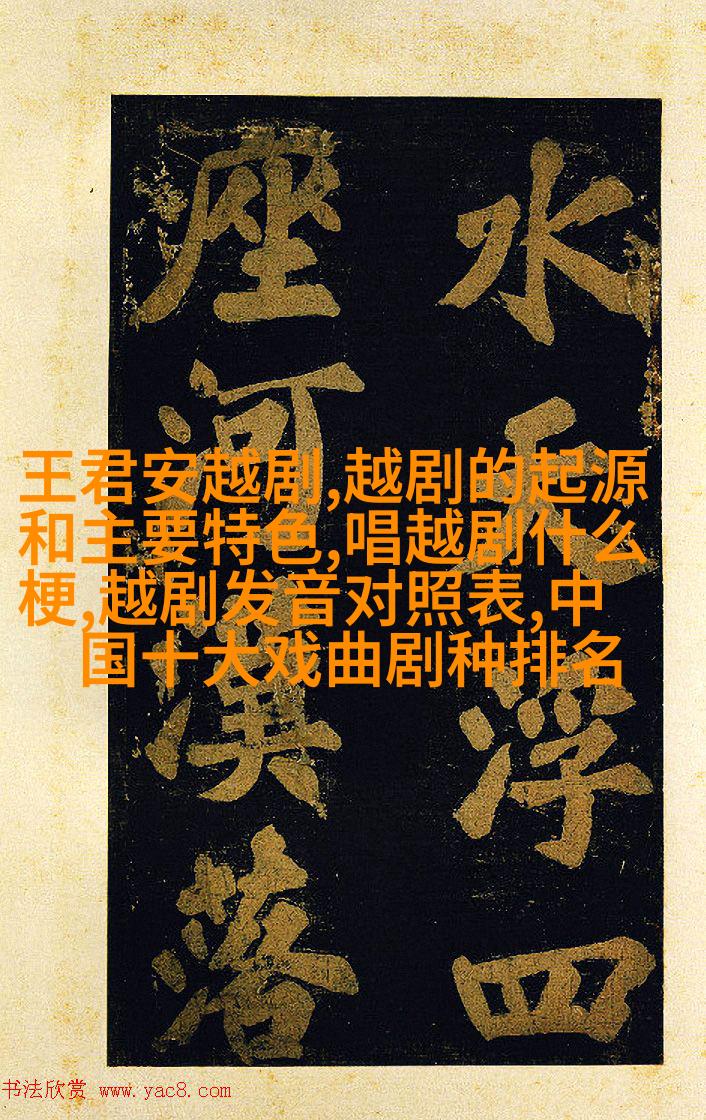 水天浮四
座河漢落
王君安越剧,越剧的起源
和主要特色,唱越剧什么
梗,越剧发音对照表,中
国十大戏曲剧种排名
书法欣赏 www.yac8.com